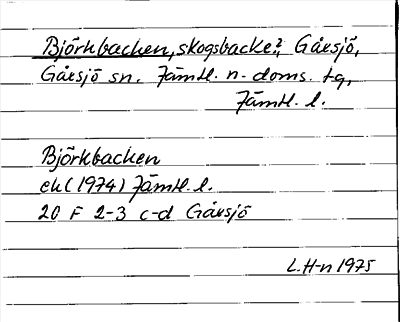 Björkbacken, skogsbacke?, Gåxsjö,
Gåxsjö sn. Jämtl. n. doms. tg,
Jämtl. l.
Björkbacken
ek (1974) Jämtl. l.
20 F 2-3 c-d Gåxsjö
L. H-n 1975